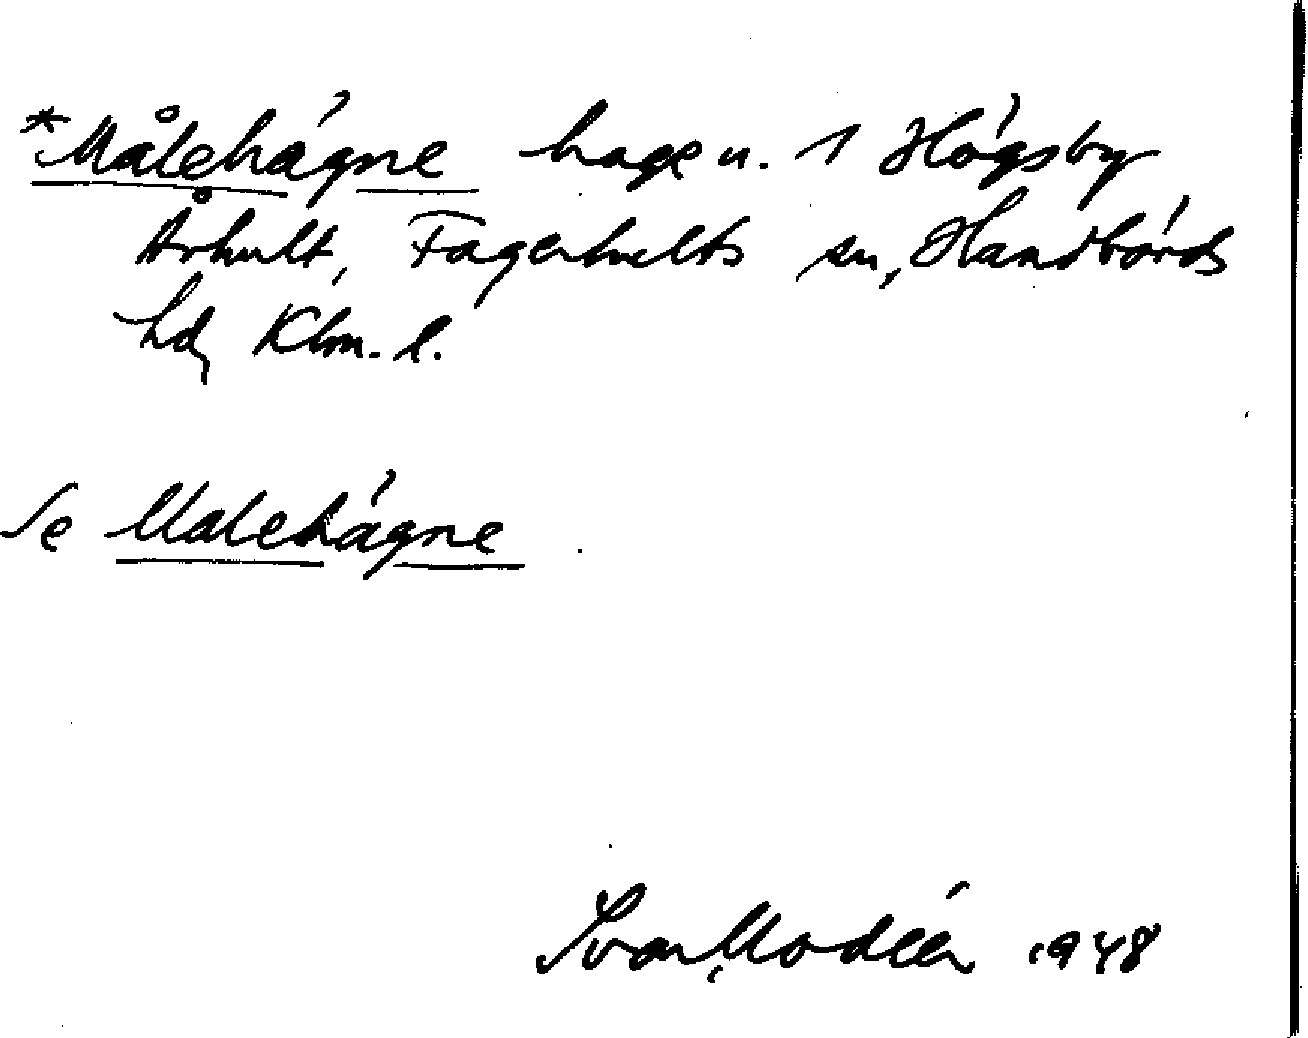 *Målehägne hage u. 1 Högsby
Århult, Fagerhults sn, Handbörds
hd, Klm. l.
Se Malehägne
Ivar Modéer 1948